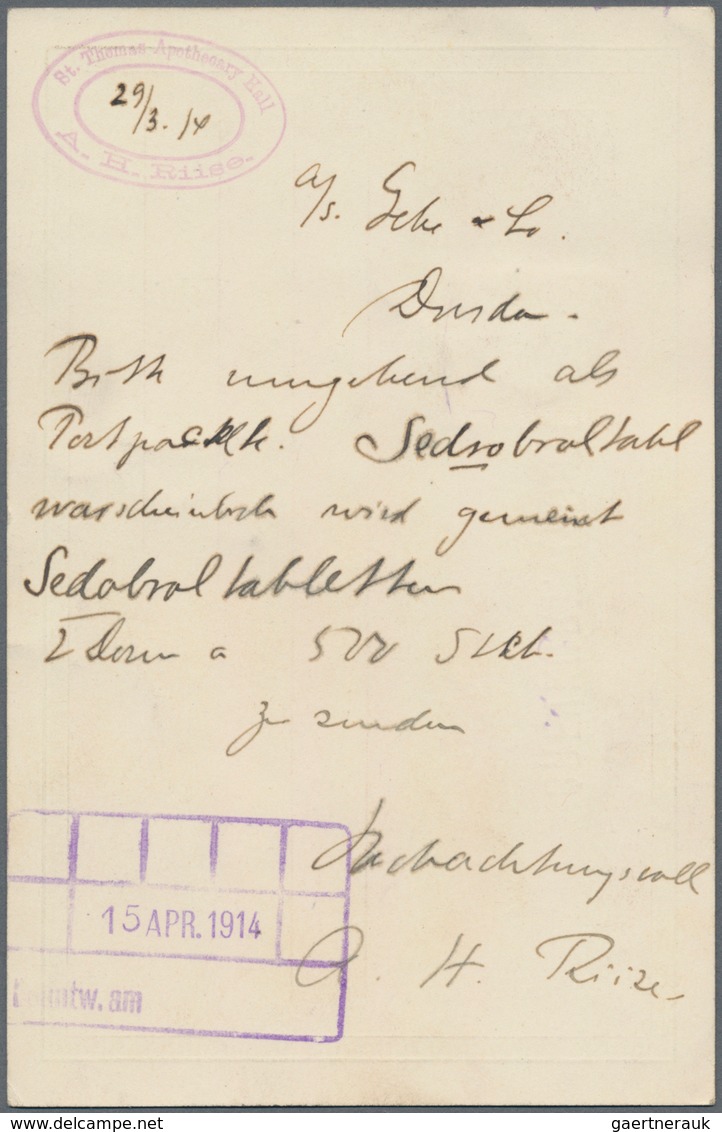 St. Thomas Apothecary Hall
29/3. 14
A. H. Riise.
A/s. Gehe & Co.
Dresden.
Bitte umgehend als
Postpackete. Sedrobroltabl
warscheinlich wird gemeint
Sedobroltabletten
I Dosen a 500 Stck.
zu senden
Hochachtungsvoll
A. H. Riise.
15 APR. 1914
Beantw. am
gaertnerauk